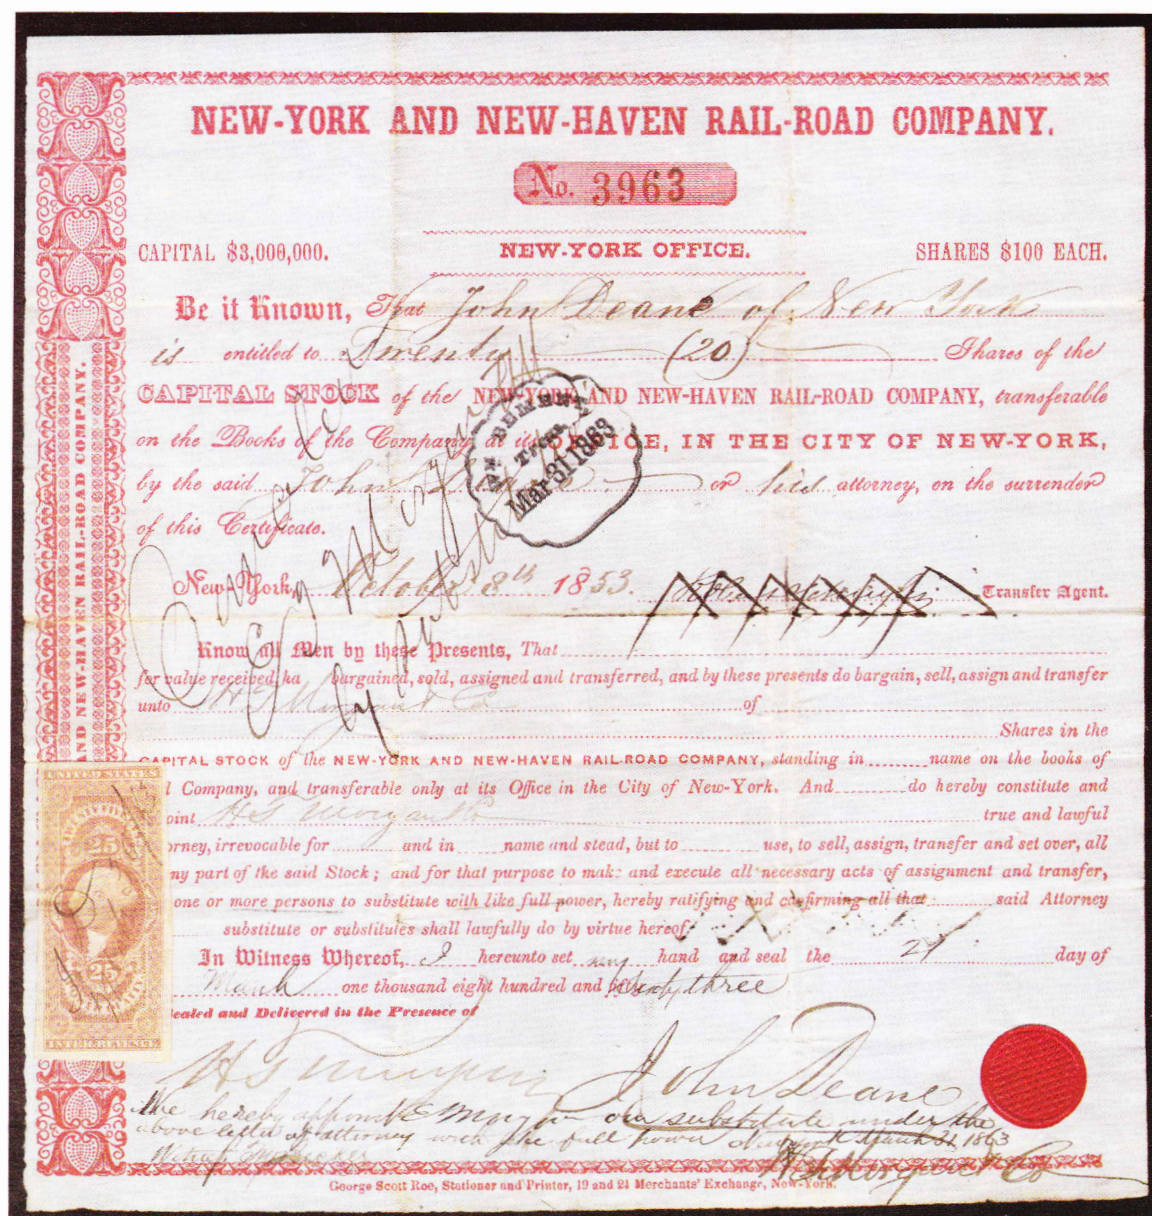 NEW-YORK AND NEW-HAVEN RAIL-ROAD COMPANY.
No. 3963
CAPITAL $3,000,000.
NEW-YORK OFFICE.
SHARES $100 EACH.
Be it Known, That John Deane of New York
is entitled to Twenty (20) Shares of the
CAPITAL STOCK of the NEW-YORK AND NEW-HAVEN RAIL-ROAD COMPANY, transferable
on the Books of the Company at its OFFICE, IN THE CITY OF NEW-YORK,
by the said John Deane or his attorney, on the surrender
of this Certificate.
WM BEMENT,
Mar 31 1863
New-York, October 8th 1853. Transfer Agent.
Know all Men by these Presents, That
for value received, ha bargained, sold, assigned and transferred, and by these presents do bargain, sell, assign and transfer
unto H S Morgan & Co of
Shares in the
CAPITAL STOCK of the NEW-YORK AND NEW-HAVEN RAIL-ROAD COMPANY, standing in name on the books of
Company, and transferable only at its Office in the City of New-York. And do hereby constitute and
oint H S Morgan & Co true and lawful
orney, irrevocable for and in name and stead, but to use, to sell, assign, transfer and set over, all
ny part of the said Stock; and for that purpose to make and execute all necessary acts of assignment and transfer,
one or more persons to substitute with like full power, hereby ratifying and confirming all that said Attorney
substitute or substitutes shall lawfully do by virtue hereof.
In Witness Whereof, I hereunto set my hand and seal the 21 day of
March one thousand eight hundred and sixty three
Sealed and Delivered in the Presence of
John Deane
We hereby appoint our substitute under the
above letter of attorney with like full power New York March 31 1863
George Scott Roe, Stationer and Printer, 19 and 21 Merchants' Exchange, New-York.
AND NEW-HAVEN RAIL-ROAD COMPANY.
UNITED STATES
25
25
INTER. REVENUE